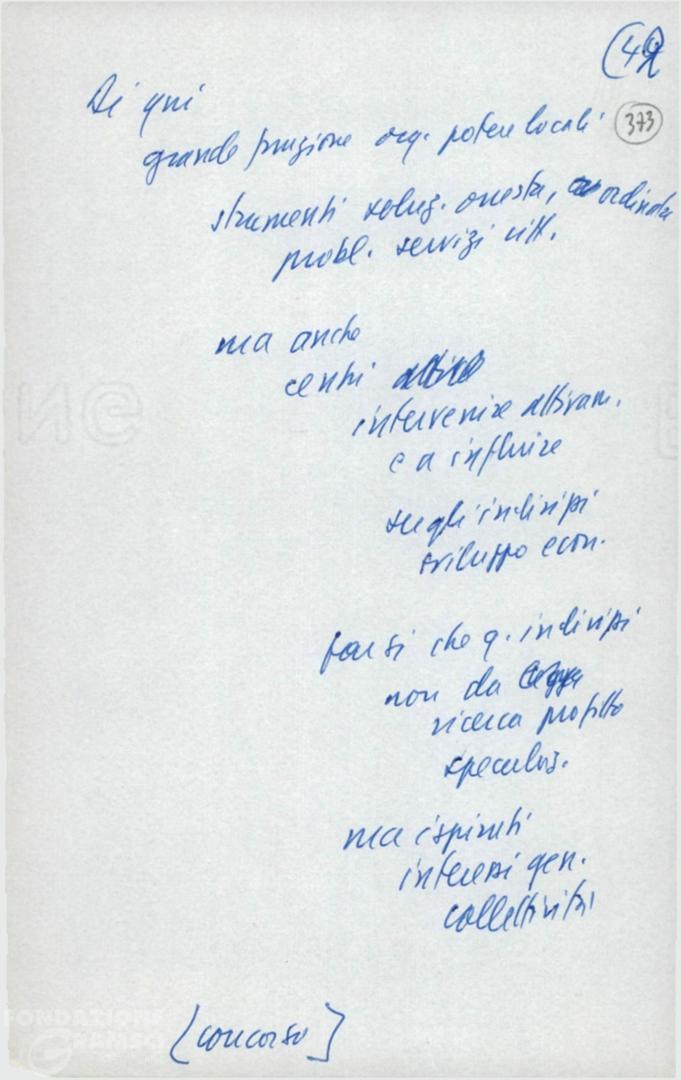 (42
373
Di qui
grande funzione org. potere locali
strumenti soluz. onesta, ordinata
probl. servizi citt.
ma anche
centri
intervenire attivam.
e a influire
sugli indirizzi
sviluppo econ.
far sì che q. indirizzi
non da
ricerca profitto
speculaz.
ma ispirati
interessi gen.
collettività
[concorso]
FONDAZIONE
GRAMSCI